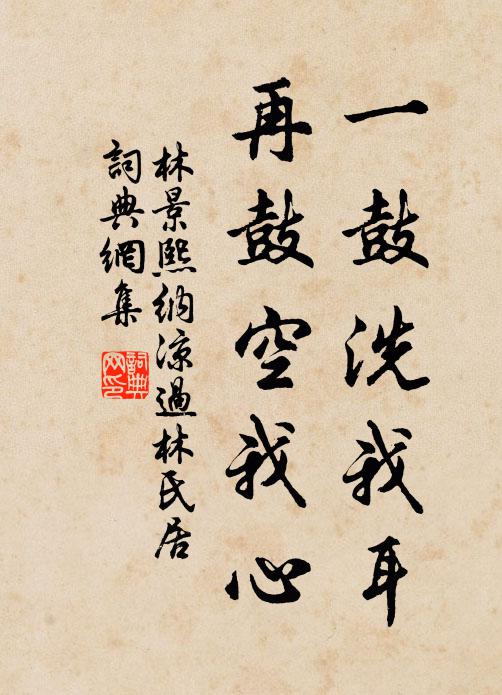 一鼓洗我耳
再鼓空我心
林景熙納涼過林氏居
詞典網集
詞典
网印